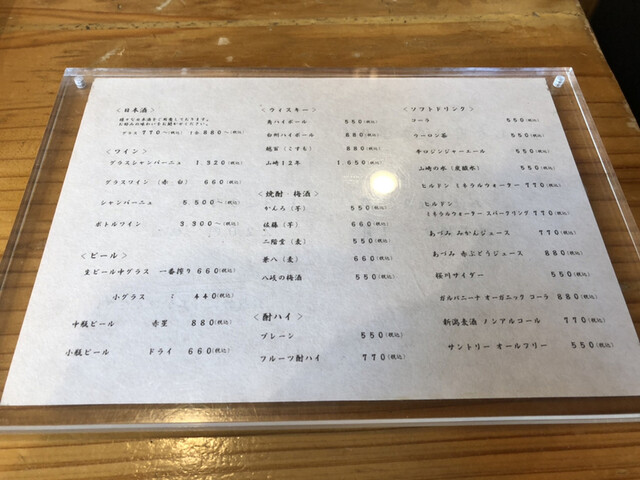 ＜日本酒＞
様々な日本酒をご用意しております。
お好みの味わいをお聞かせください。
グラス 770〜(税込) 1合 880〜(税込)
＜ワイン＞
グラスシャンパーニュ 1.320(税込)
グラスワイン (赤 白) 660(税込)
シャンパーニュ 5.500〜(税込)
ボトルワイン 3.300〜(税込)
＜ビール＞
生ビール中グラス 一番搾り 660(税込)
小グラス : 440(税込)
中瓶ビール 赤星 880(税込)
小瓶ビール ドライ 660(税込)
＜ウィスキー＞
角ハイボール 550(税込)
白州ハイボール 880(税込)
越百 (こすも) 880(税込)
山崎12年 1.650(税込)
＜焼酎・梅酒＞
かんろ (芋) 550(税込)
佐藤 (芋) 660(税込)
二階堂 (麦) 550(税込)
兼八 (麦) 660(税込)
八岐の梅酒 550(税込)
＜酎ハイ＞
プレーン 550(税込)
フルーツ酎ハイ 770(税込)
＜ソフトドリンク＞
コーラ 550(税込)
ウーロン茶 550(税込)
辛口ジンジャーエール 550(税込)
山崎の水 (炭酸水) 550(税込)
ヒルドン ミネラルウォーター 770(税込)
ヒルドン
ミネラルウォーター スパークリング 770(税込)
あづみ みかんジュース 770(税込)
あづみ 赤ぶどうジュース 880(税込)
桜川サイダー 550(税込)
ガルバニーナ オーガニック コーラ 880(税込)
新潟麦酒 ノンアルコール 770(税込)
サントリー オールフリー 550(税込)